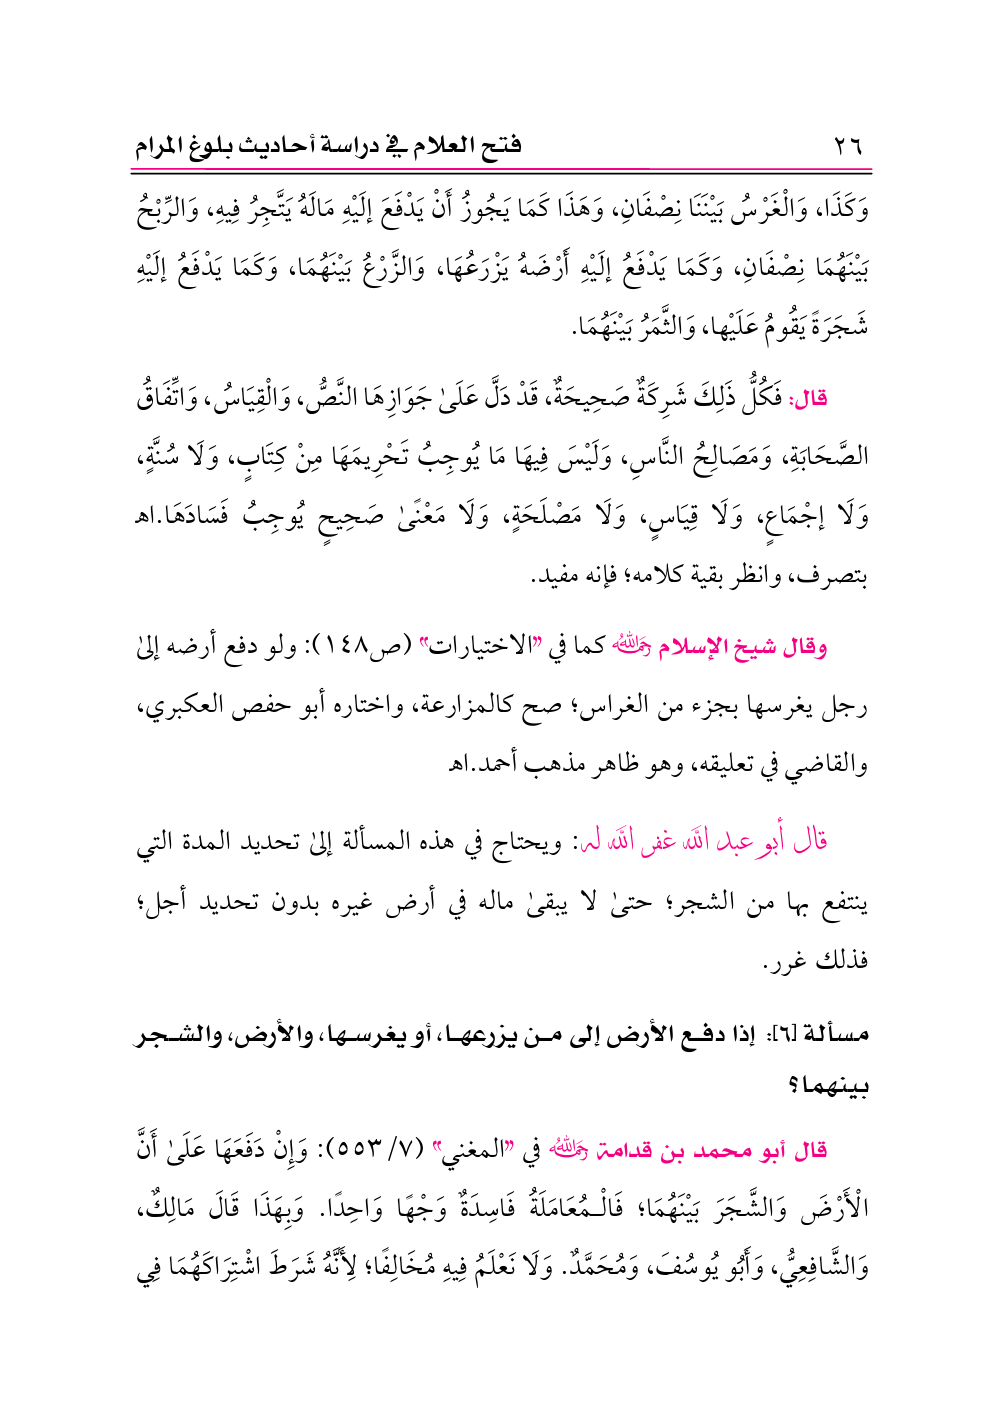 ٢٦ فتح العلام في دراسة أحاديث بلوغ المرام
وَكَذَا، وَالْغَرْسُ بَيْنَنَا نِصْفَانِ، وَهَذَا كَمَا يَجُوزُ أَنْ يَدْفَعَ إلَيْهِ مَالَهُ يَتَّجِرُ فِيهِ، وَالرِّبْحُ
بَيْنَهُمَا نِصْفَانِ، وَكَمَا يَدْفَعُ إلَيْهِ أَرْضَهُ يَزْرَعُهَا، وَالزَّرْعُ بَيْنَهُمَا، وَكَمَا يَدْفَعُ إلَيْهِ
شَجَرَةً يَقُومُ عَلَيْها، وَالثَّمَرُ بَيْنَهُمَا.
قال: فَكُلُّ ذَلِكَ شَرِكَةٌ صَحِيحَةٌ، قَدْ دَلَّ عَلَىٰ جَوَازِهَا النَّصُّ، وَالْقِيَاسُ، وَاتِّفَاقُ
الصَّحَابَةِ، وَمَصَالِحُ النَّاسِ، وَلَيْسَ فِيهَا مَا يُوجِبُ تَحْرِيمَهَا مِنْ كِتَابٍ، وَلَا سُنَّةٍ،
وَلَا إجْمَاعٍ، وَلَا قِيَاسٍ، وَلَا مَصْلَحَةٍ، وَلَا مَعْنًىٰ صَحِيحٍ يُوجِبُ فَسَادَهَا.اهـ
بتصرف، وانظر بقية كلامه؛ فإنه مفيد.
وقال شيخ الإسلام رحمه الله كما في "الاختيارات" (ص١٤٨): ولو دفع أرضه إلىٰ
رجل يغرسها بجزء من الغراس؛ صح كالمزارعة، واختاره أبو حفص العكبري،
والقاضي في تعليقه، وهو ظاهر مذهب أحمد.اهـ
قال أبو عبد الله غفر الله له: ويحتاج في هذه المسألة إلىٰ تحديد المدة التي
ينتفع بها من الشجر؛ حتىٰ لا يبقىٰ ماله في أرض غيره بدون تحديد أجل؛
فذلك غرر.
مسألة [٦]: إذا دفـع الأرض إلى مـن يزرعهـا، أو يغرسـها، والأرض، والشـجر
بينهما؟
قال أبو محمد بن قدامة رحمه الله في "المغني" (٧/ ٥٥٣): وَإِنْ دَفَعَهَا عَلَىٰ أَنَّ
الْأَرْضَ وَالشَّجَرَ بَيْنَهُمَا؛ فَالْـمُعَامَلَةُ فَاسِدَةٌ وَجْهًا وَاحِدًا. وَبِهَذَا قَالَ مَالِكٌ،
وَالشَّافِعِيُّ، وَأَبُو يُوسُفَ، وَمُحَمَّدٌ. وَلَا نَعْلَمُ فِيهِ مُخَالِفًا؛ لِأَنَّهُ شَرَطَ اشْتِرَاكَهُمَا فِي